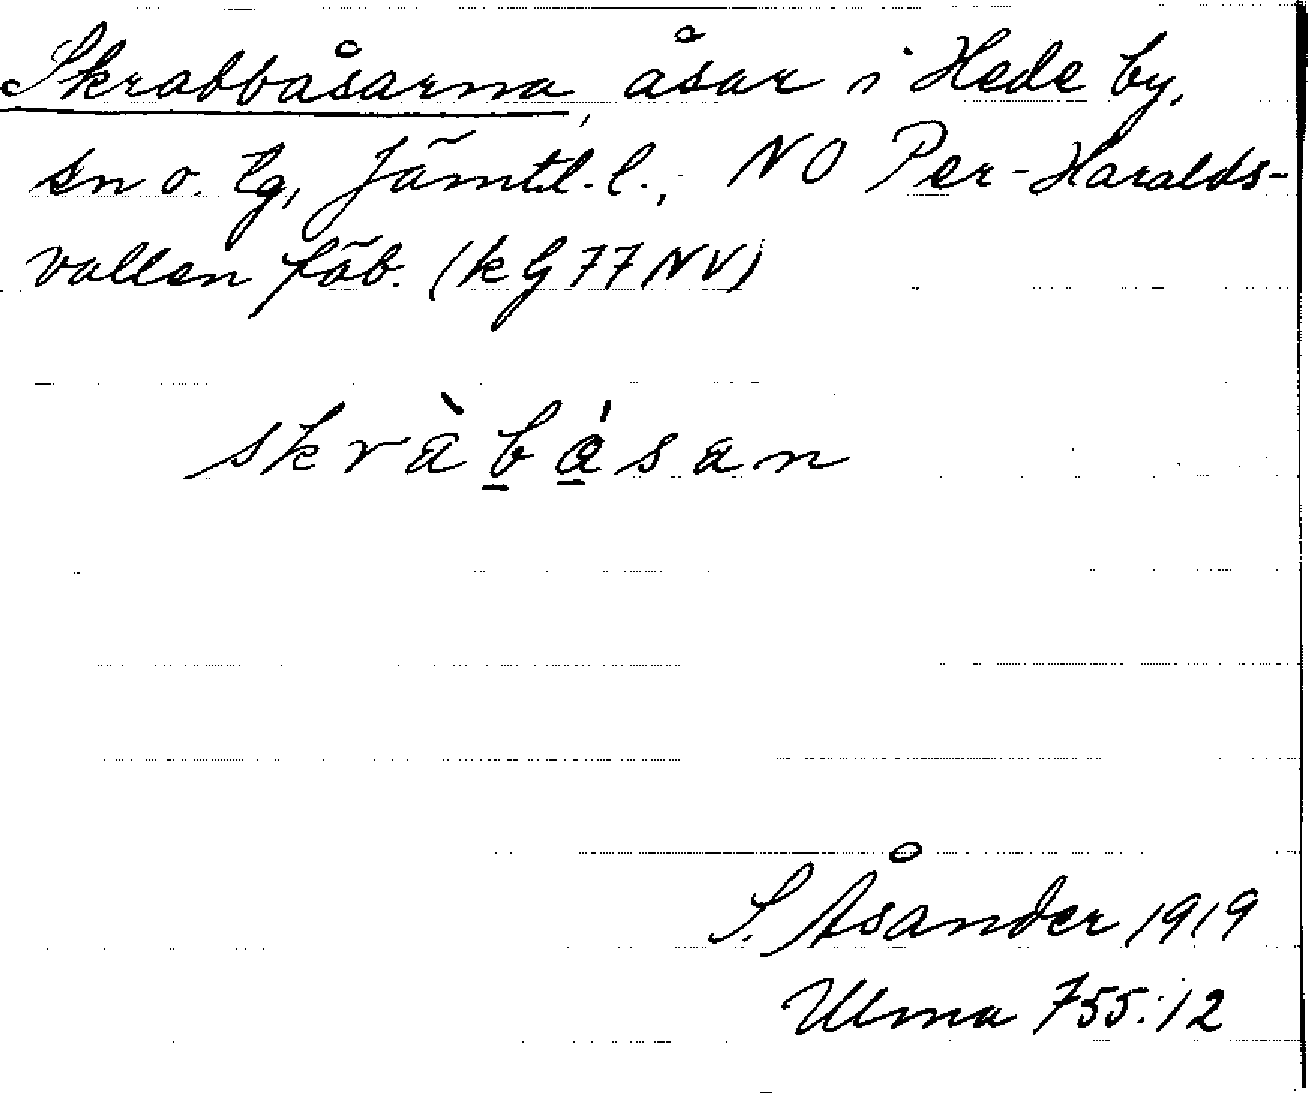 Skrabbåsarna, åsar i Hede by,
sn o. tg, Jämtl. l., NO Per-Haralds-
vallen fäb. (kG 77 NV)
skràbá̱san
S. Åsander 1919
Ulma 755:12